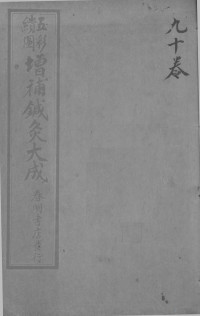 九十卷
五彩
繪圖
增補鍼灸大成